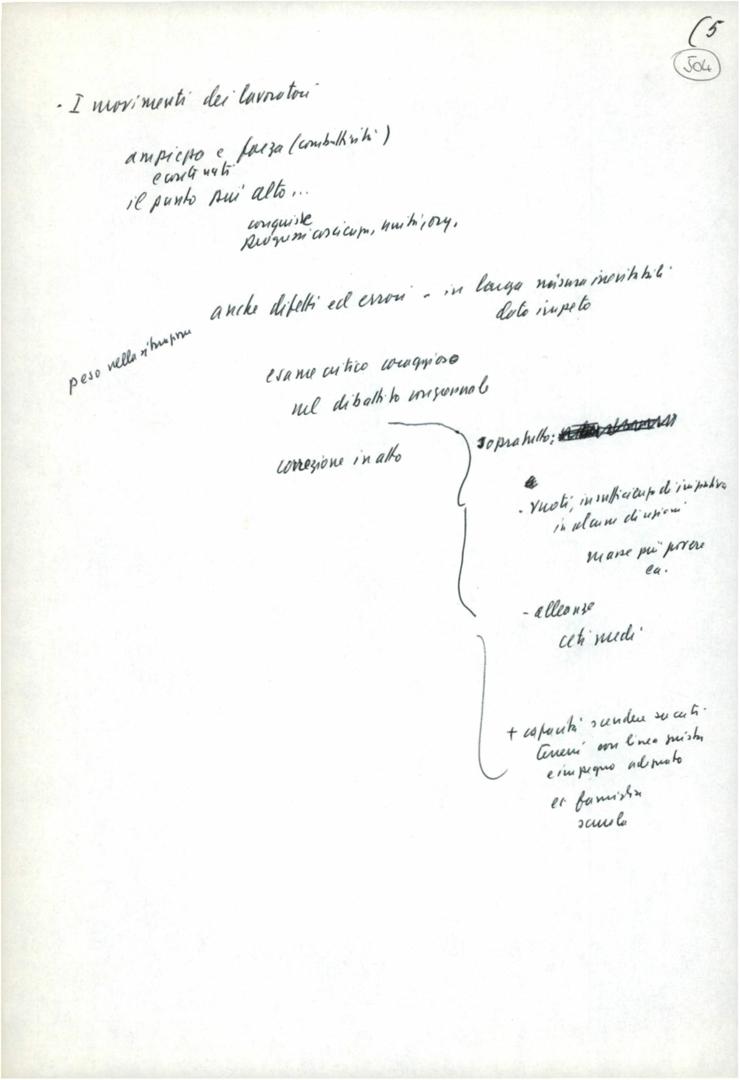 (5
504
· I movimenti dei lavoratori
ampiezza e forza (combattività)
e continuità
il punto più alto...
conquiste
progressi coscienza, unità, org.
anche difetti ed errori - in larga misura inevitabili
dato impeto
peso nella situazione
esame critico coraggioso
nel dibattito congressuale
correzione in atto
sopratutto:
- vuoti, insufficienza di iniziativa
in alcune direzioni
masse più povere
- alleanze
ceti medi
+ capacità scendere su certi
terreni con linea giusta
e impegno adeguato
es famiglia
scuola